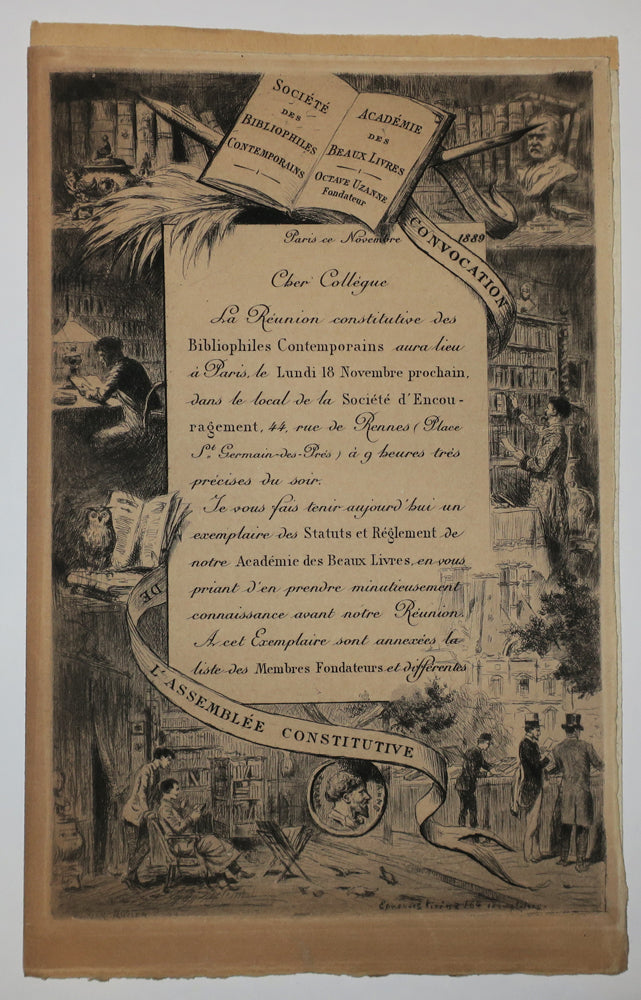 SOCIÉTÉ
DES
BIBLIOPHILES
CONTEMPORAINS
ACADÉMIE
DES
BEAUX LIVRES
OCTAVE UZANNE
Fondateur
CONVOCATION
Paris ce Novembre 1889
Cher Collègue
La Réunion constitutive des
Bibliophiles Contemporains aura lieu
à Paris, le Lundi 18 Novembre prochain,
dans le local de la Société d'Encou-
ragement, 44, rue de Rennes (Place
St. Germain-des-Prés) à 9 heures très
précises du soir.
Je vous fais tenir aujourd'hui un
exemplaire des Statuts et Réglement de
notre Académie des Beaux Livres, en vous
priant d'en prendre minutieusement
connaissance avant notre Réunion.
A cet Exemplaire sont annexées la
liste des Membres Fondateurs et différentes
DE
L'ASSEMBLÉE CONSTITUTIVE